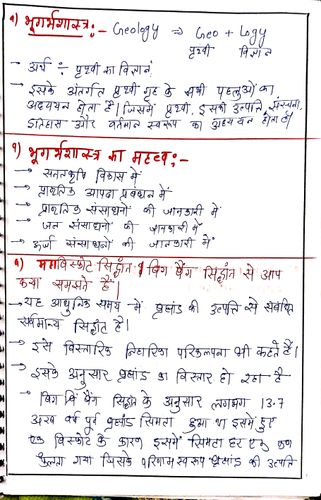 १) भूगर्भशास्त्र:- Geology ⇒ Geo + Logy
पृथ्वी विज्ञान
→ अर्थ ÷ पृथ्वी का विज्ञान
→ इसके अंतर्गत पृथ्वी गृह के सभी पहलुओं का
अध्ययन होता है। जिसमें पृथ्वी, इसकी उत्पत्ति, संरचना,
इतिहास और वर्तमान स्वरूप का अध्ययन होता है।
१) भूगर्भशास्त्र का महत्व:-
→ सततकृषि विकास में
→ प्राकृतिक आपदा प्रबंधन में
→ प्राकृतिक संसाधनों की जानकारी में
→ जल संसाधनों की जानकारी में
→ ऊर्जा संसाधनों की जानकारी में
१) महाविस्फोट सिद्धांत / बिग बैंग सिद्धांत से आप
क्या समझते हैं।
→ यह आधुनिक समय में ब्रह्मांड की उत्पत्ति से संबंधित
सर्वमान्य सिद्धांत है।
→ इसे विस्तारित परिकल्पना भी कहते हैं।
→ इसके अनुसार ब्रह्मांड का विस्तार हो रहा है
→ बिग बैंग सिद्धांत के अनुसार लगभग 13.7
अरब वर्ष पूर्व ब्रह्मांड सिमटा हुआ था इसमें हुए
एक विस्फोट के कारण इसमें सिमटा हर एक कण
फैलता गया जिसके परिणामस्वरूप ब्रह्मांड की उत्पत्ति